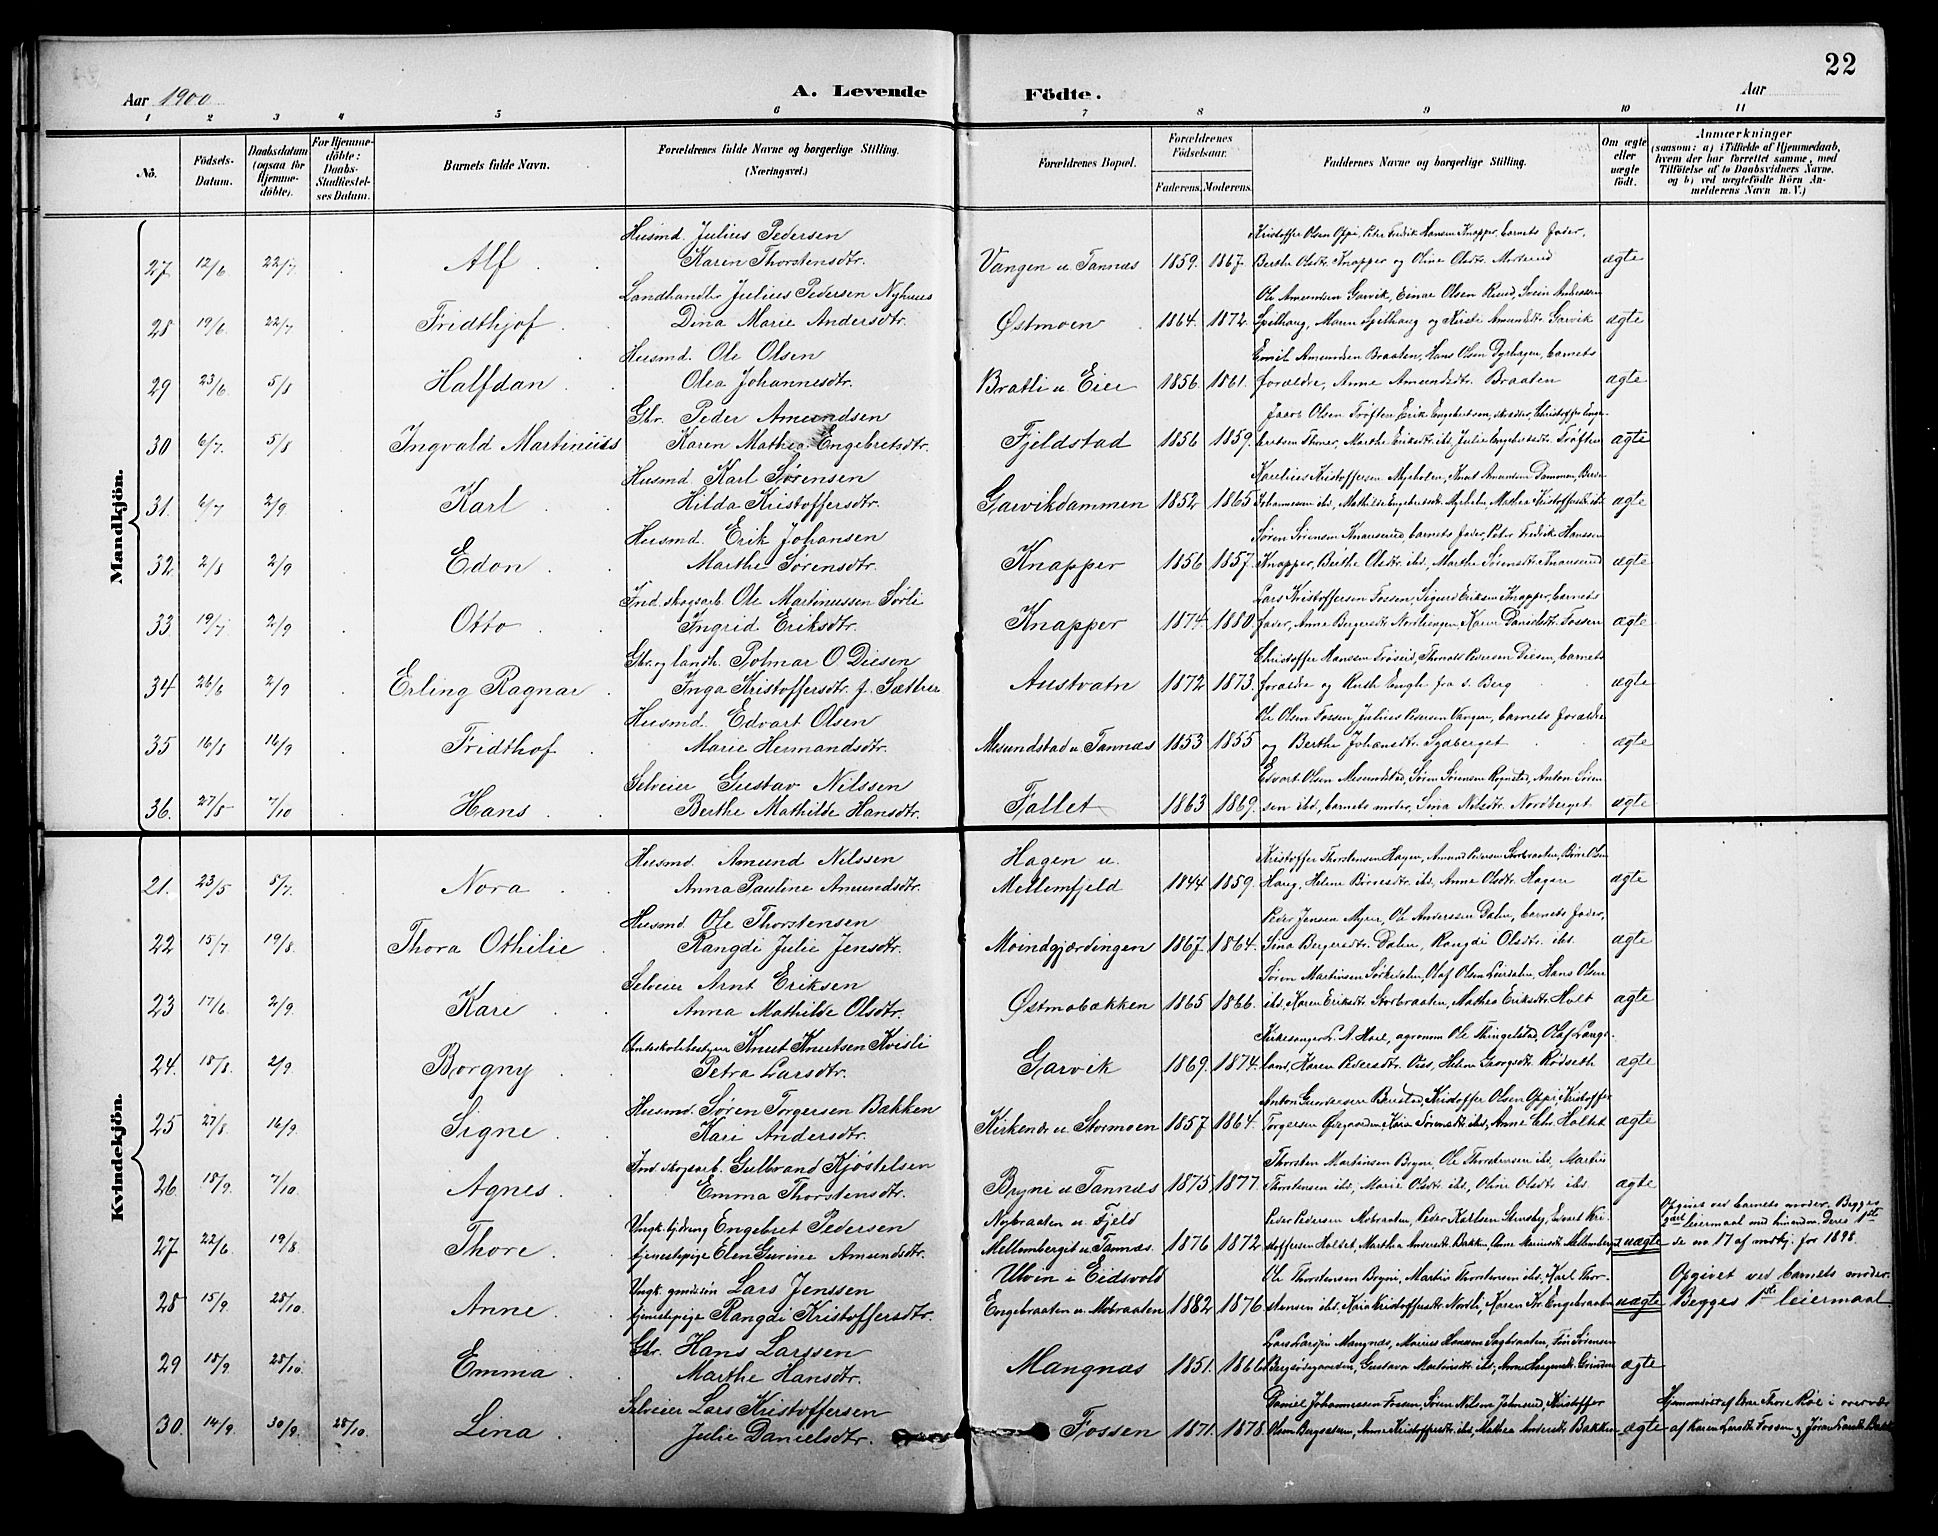 22
Aar 1900
A. Levende Födte.
Aar
1 2 3 4 5 6 7 8 9 10 11
No.
Födsels-Datum.
Daabsdatum (ogsaa for Hjemme-döbte).
For Hjemme-döbte: Daabs-Stadfæstelses Datum.
Barnets fulde Navn.
Forældrenes fulde Navne og borgerlige Stilling. (Næringsvei.)
Forældrenes Bopæl.
Forældrenes Födselsaar.
Faderens. Moderens.
Faddernes Navne og borgerlige Stilling.
Om ægte eller uægte födt.
Anmærkninger
(saasom: a) i Tilfælde af Hjemmedaab,
hvem der har forrettet samme, med
Tilföielse af to Daabsvidners Navne.
og b) ved uægtefödte Börn An-
melderens Navn m. V.)
Mandkjön.
Husmd. Julius Pedersen Kristoffer Olsen Oppi, Peter Fredik Hansen Knapper, barnets fader,
27 12/6 22/7 Alf Karen Thorstensdtr. Vangen u. Tannæs 1859. 1867. Berthe Olsdtr. Knapper og Oline Olsdtr. ægte
Landhandler Julius Pedersen Nyhuus Ole Amundsen Garvik, Einar Olsen Svein Andreassen
28 19/6 22/7 Fridthjof Dina Marie Andersdtr. Østmoen 1864. 1872. Spithaug, Maren Spithaug og Kirsti Amundsdtr. Garvik ægte
Husmd. Ole Olsen Emil Amundsen Braaten, Hans Olsen Dyrhagen, barnets
29 23/6 5/8 Halfdan Olea Johannesdtr. Bratli u. Eier 1856. 1861. forældre, Anne Amundsdtr. Braaten ægte
Gbr. Peder Amundsen Olsen Trøften, Erik Engebretsen, Christoffer Enge-
30 6/7 5/8 Ingvald Martinius Karen Mathea Engebretsdtr. Fjeldstad 1856 1859. Marthe Eriksdtr. ibd, Julie Engebretsdtr. Trøften ægte
Husmd Karl Sørensen Karelius Kristoffersen Myrholen, Knut Amundsen Dammen,
31. 6/7 2/9 Karl Hilda Kristoffersdtr. Garvikdammen 1852 1865 Johannesen ibd, Mathilde Engebretsdtr. Myrholen, Mathea Kristoffersdtr. ibd ægte
Husmd. Erik Johansen Søren Sørensen Knarrerud, barnets fader, Peter Fredik Hanssen
32. 2/8 2/9 Edon Marthe Sørensdtr. Knapper 1856 1857. Knapper, Berthe Olsdtr. ibd, Marthe Sørensdtr. Knarrerud ægte
Ind. skogsarb. Ole Martinussen Sørli Lars Kristoffersen Fossen, Sigurd Eriksen Knapper, barnets
33. 19/7 2/9 Otto Ingrid Eriksdtr. Knapper 1874 1880 fader, Anne Bergersdtr. Karen Danielsdtr. Fossen ægte
Gbr. og landh. Polmar O Diesen Christoffer Hanssen Trøseid, Thomas Pedersen Diesen, barnets
34 26/6 2/9 Erling Ragnar Inga Kristoffersdtr. f. Sæther Austvatn 1872 1873. forældre og Ruth Engh fra s. Berg ægte
Husmd. Edvart Olsen Ole Olsen Fossen, Julius Pedersen Vangen, barnets forældre
35 16/8 16/9 Fridthof Marie Hermandsdtr. Mesundstad u. Tannæs 1853 1855 og Berthe Johansdtr. Sydberget ægte
Selveier Gustav Nilssen Edvart Olsen Mesundstad, Søren Sørensen Rognstad, Anton Søren
36. 27/8 7/10 Hans Berthe Mathilde Hansdtr. Fallet 1863 1869. sen ibd, barnets moder, Sina Nilsdtr. Nordberget ægte
Kvindekjön.
Husmd. Amund Nilssen Hagen u. Kristoffer Thorstensen Hagen, Amund Pedersen Storbraaten, Børre Olsen
21. 23/5 5/7 Nora Anna Pauline Amundsdtr. Mellemfjeld 1844 1859. Haug, Helene Børresdtr. ibd, Anne Olsdtr. Hagen ægte
Husmd. Ole Thorstensen Peder Jensen Myrer, Ole Anderssen Dalen, barnets fader,
22 15/7 19/8 Thora Othilie Rangdi Julie Jensdtr. Moindgjærdingen 1867. 1864. Sina Bergersdtr. Dalen, Rangdi Olsdtr. ibd. ægte
Selveier Arnt Eriksen Søren Martinsen Sørkedalen, Olaf Olsen Leirdalen, Hans Olsen
23 17/6 2/9 Kari Anna Mathilde Olsdtr. Østmobækken 1865 1866. ibd, Karen Eriksdtr. Storbraaten, Mathea Eriksdtr. Holt ægte
Amtsskolebestyrer Knut Knutsen Kvisli Kirkesanger L. A. Horl, agronom Ole Thingelstad, Olaf Langs-
24. 18/8 2/9 Borgny Petra Larsdtr. Garvik 1869. 1874. Karen Pedersdtr. Helene Georgsdtr. Rødseth ægte
Husmd. Søren Torgersen Bækken Anton Kristoffer Olsen Oppi, Kristoffer
25 27/8 16/9 Signe Kari Andersdtr. Kirkenær u. Stormoen 1857 1864. Torgersen Øiegaarden, Karen Sørensdtr. ibd, Anne Chr. Holtet ægte
Ind. skogsarb. Gulbrand Kjøstelsen Thorsten Martinsen Bryni, Ole Thorstensen ibd, Martin
26. 18/9. 7/10. Agnes Emma Thorstensdtr. Bryni u Tannæs 1875 1877. Thorstensen ibd, Marie Olsdtr. ibd, Oline Olsdtr. ibd. ægte
Ungk. Engebret Pedersen Nybraaten u. Fjeld Peder Pedersen Mobraaten, Peder Karlsen Stensby, Edvart Kri- Opgivet ved barnets moder. Begges
27 22/6 19/8 Thore tjenestepige Elen Gurine Amundsdtr. Mellemberget u. Tannæs. 1876 1872 stoffersen Holtet, Martha Andersdtr. Bækken, Anne uægte 2det leiermaal med hinanden. Deres 1ste
se no 17 af mdkj. for 1898.
Ungk. grdssøn Lars Jenssen Ulvin i Eidsvold Ole Thorstensen Bryni, Martin Thorstensen ibd, Karl Thor- Opgivet ved barnets moder.
28 15/9. 28/10. Anne tjenestepige Rangdi Kristoffersdtr. Engebraaten u. Mobraaten 1882 1876. stensen ibd, Kaia Kristoffersdtr. Nordli, Karen Kr. Engebraaten uægte Begges 1ste leiermaal
Gbr. Hans Larssen Lars Larssen Mangnæs, Marius Hansen Sagbraaten, Tor Sørensen
29 18/9. 28/10. Emma Marthe Hansdtr. Mangnæs 1851. 1866 Gustava Martinsdtr. ibd, Anne Grinder ægte
Selveier Lars Kristoffersen Daniel Johannessen Fossen, Søren Nilsen Johnsrud, Kristoffer Hjemmedøbt af Thore Roe i overvær
30. 14/9. 30/9. 28/10. Lina Julie Danielsdtr. Fossen 1871. 1878. Olsen Bergsæteren, Anne Kristoffersdtr. ibd, Mathea Andersdtr. Bækken ægte af Karen Larsdtr. Fossen og Jøran